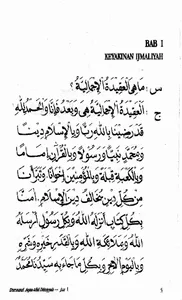 BAB 1
KEYAKINAN IJMALIYAH
س : مَا هِيَ الْعَقِيْدَةُ الْإِجْمَالِيَّةُ ؟
ج : الْعَقِيْدَةُ الْإِجْمَالِيَّةُ هِيَ وَبَعْدُ فَإِنَّا وَالْحَمْدُ لِلّٰهِ
قَدْ رَضِيْنَا بِاللّٰهِ رَبًّا وَبِالْإِسْلَامِ دِيْنًا
وَبِمُحَمَّدٍ نَبِيًّا وَرَسُوْلًا وَبِالْقُرْآنِ إِمَامًا
وَبِالْكَعْبَةِ قِبْلَةً وَبِالْمُؤْمِنِيْنَ إِخْوَانًا وَتَبَرَّأْنَا
مِنْ كُلِّ دِيْنٍ يُخَالِفُ دِيْنَ الْإِسْلَامِ. آمَنَّا
بِكُلِّ كِتَابٍ أَنْزَلَهُ اللّٰهُ وَبِكُلِّ رَسُوْلٍ أَرْسَلَهُ
اللّٰهُ وَبِمَلَائِكَةِ اللّٰهِ وَبِالْقَدَرِ خَيْرِهِ وَشَرِّهِ
وَبِالْيَوْمِ الْآخِرِ وَبِكُلِّ مَا جَاءَ بِهِ سَيِّدُنَا مُحَمَّدٌ
5